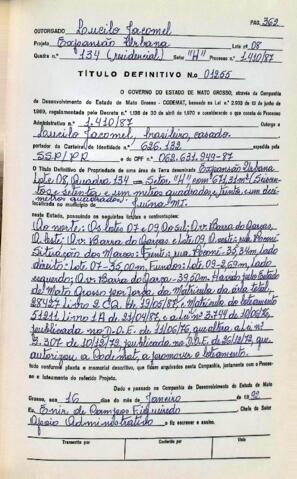 PAG. 362
OUTORGADO Lucilo Jacomel
Projeto Expansão Urbana Lote n.º 08
Quadra n.º 134 (residencial) Setor "H" Processo n.º 1.410/87
TÍTULO DEFINITIVO N.o 01255
O GOVERNO DO ESTADO DE MATO GROSSO, através da Companhia
de Desenvolvimento do Estado de Mato Grosso - CODEMAT, baseado na Lei n.º 2.933 de 13 de junho
de 1969, regulamentada pelo Decreto n.º 1.136 de 30 de abril de 1970 e considerando o que consta do Processo
Administrativo n.º 1.410/87 Outorga a
Lucilo Jacomel, brasileiro, casado,
portador da Carteira de Identidade n.º 626.132 expedida pela
SSP/PR e do CPF n.º 062.631.949-87
o Título Definitivo de Propriedade de uma área de Terra denominada Expansão Urbana
Lote 08, Quadra 134 - Setor "H" com 671,31 m² (Seiscen
tos e setenta e um metros quadrados e trinta e um deci
metros quadrados)
localizada no município de Juína/MT.
neste Estado, possuindo os seguintes limites e confrontações:
Ao norte: Os lotes 07 e 09 Ao sul: Av. Barra do Garças.
A leste: Av. Barra do Garças e lote 09 A oeste:
Situação dos Marcos: Frente:
direito: Lote 07-35,00m, Fundos: Lote 09- lado
esquerdo: Av. Barra do Garças- Havido pelo Estado
de Mato Grosso Matrícula da área total,
28427 Livro 2 19/05/87; Matrícula do loteamento
51211 Livro 1A 27/04/87, e a Lei nº 3.744 de 10/06/76,
publicada no D.O.E. de 11/06/76, que altera a Lei nº
3.307 de 18/12/72, publicada no D.O.E. de que
autorizou a Codemat, a promover o loteamento.
tudo conforme planta e memorial descritivo, que ficam arquivados nesta Companhia, juntamente com o Proces-
so e loteamento do referido Projeto.
Dado e passado na Companhia de Desenvolvimento do Estado de Mato
Grosso, aos 16 dias do mês de Janeiro de 19 90
Eu Enir de Campos Figueiredo Chefe do Setor
Apoio Administrativo o fiz escrever e assino.
Transcrito por Conferido por Visto